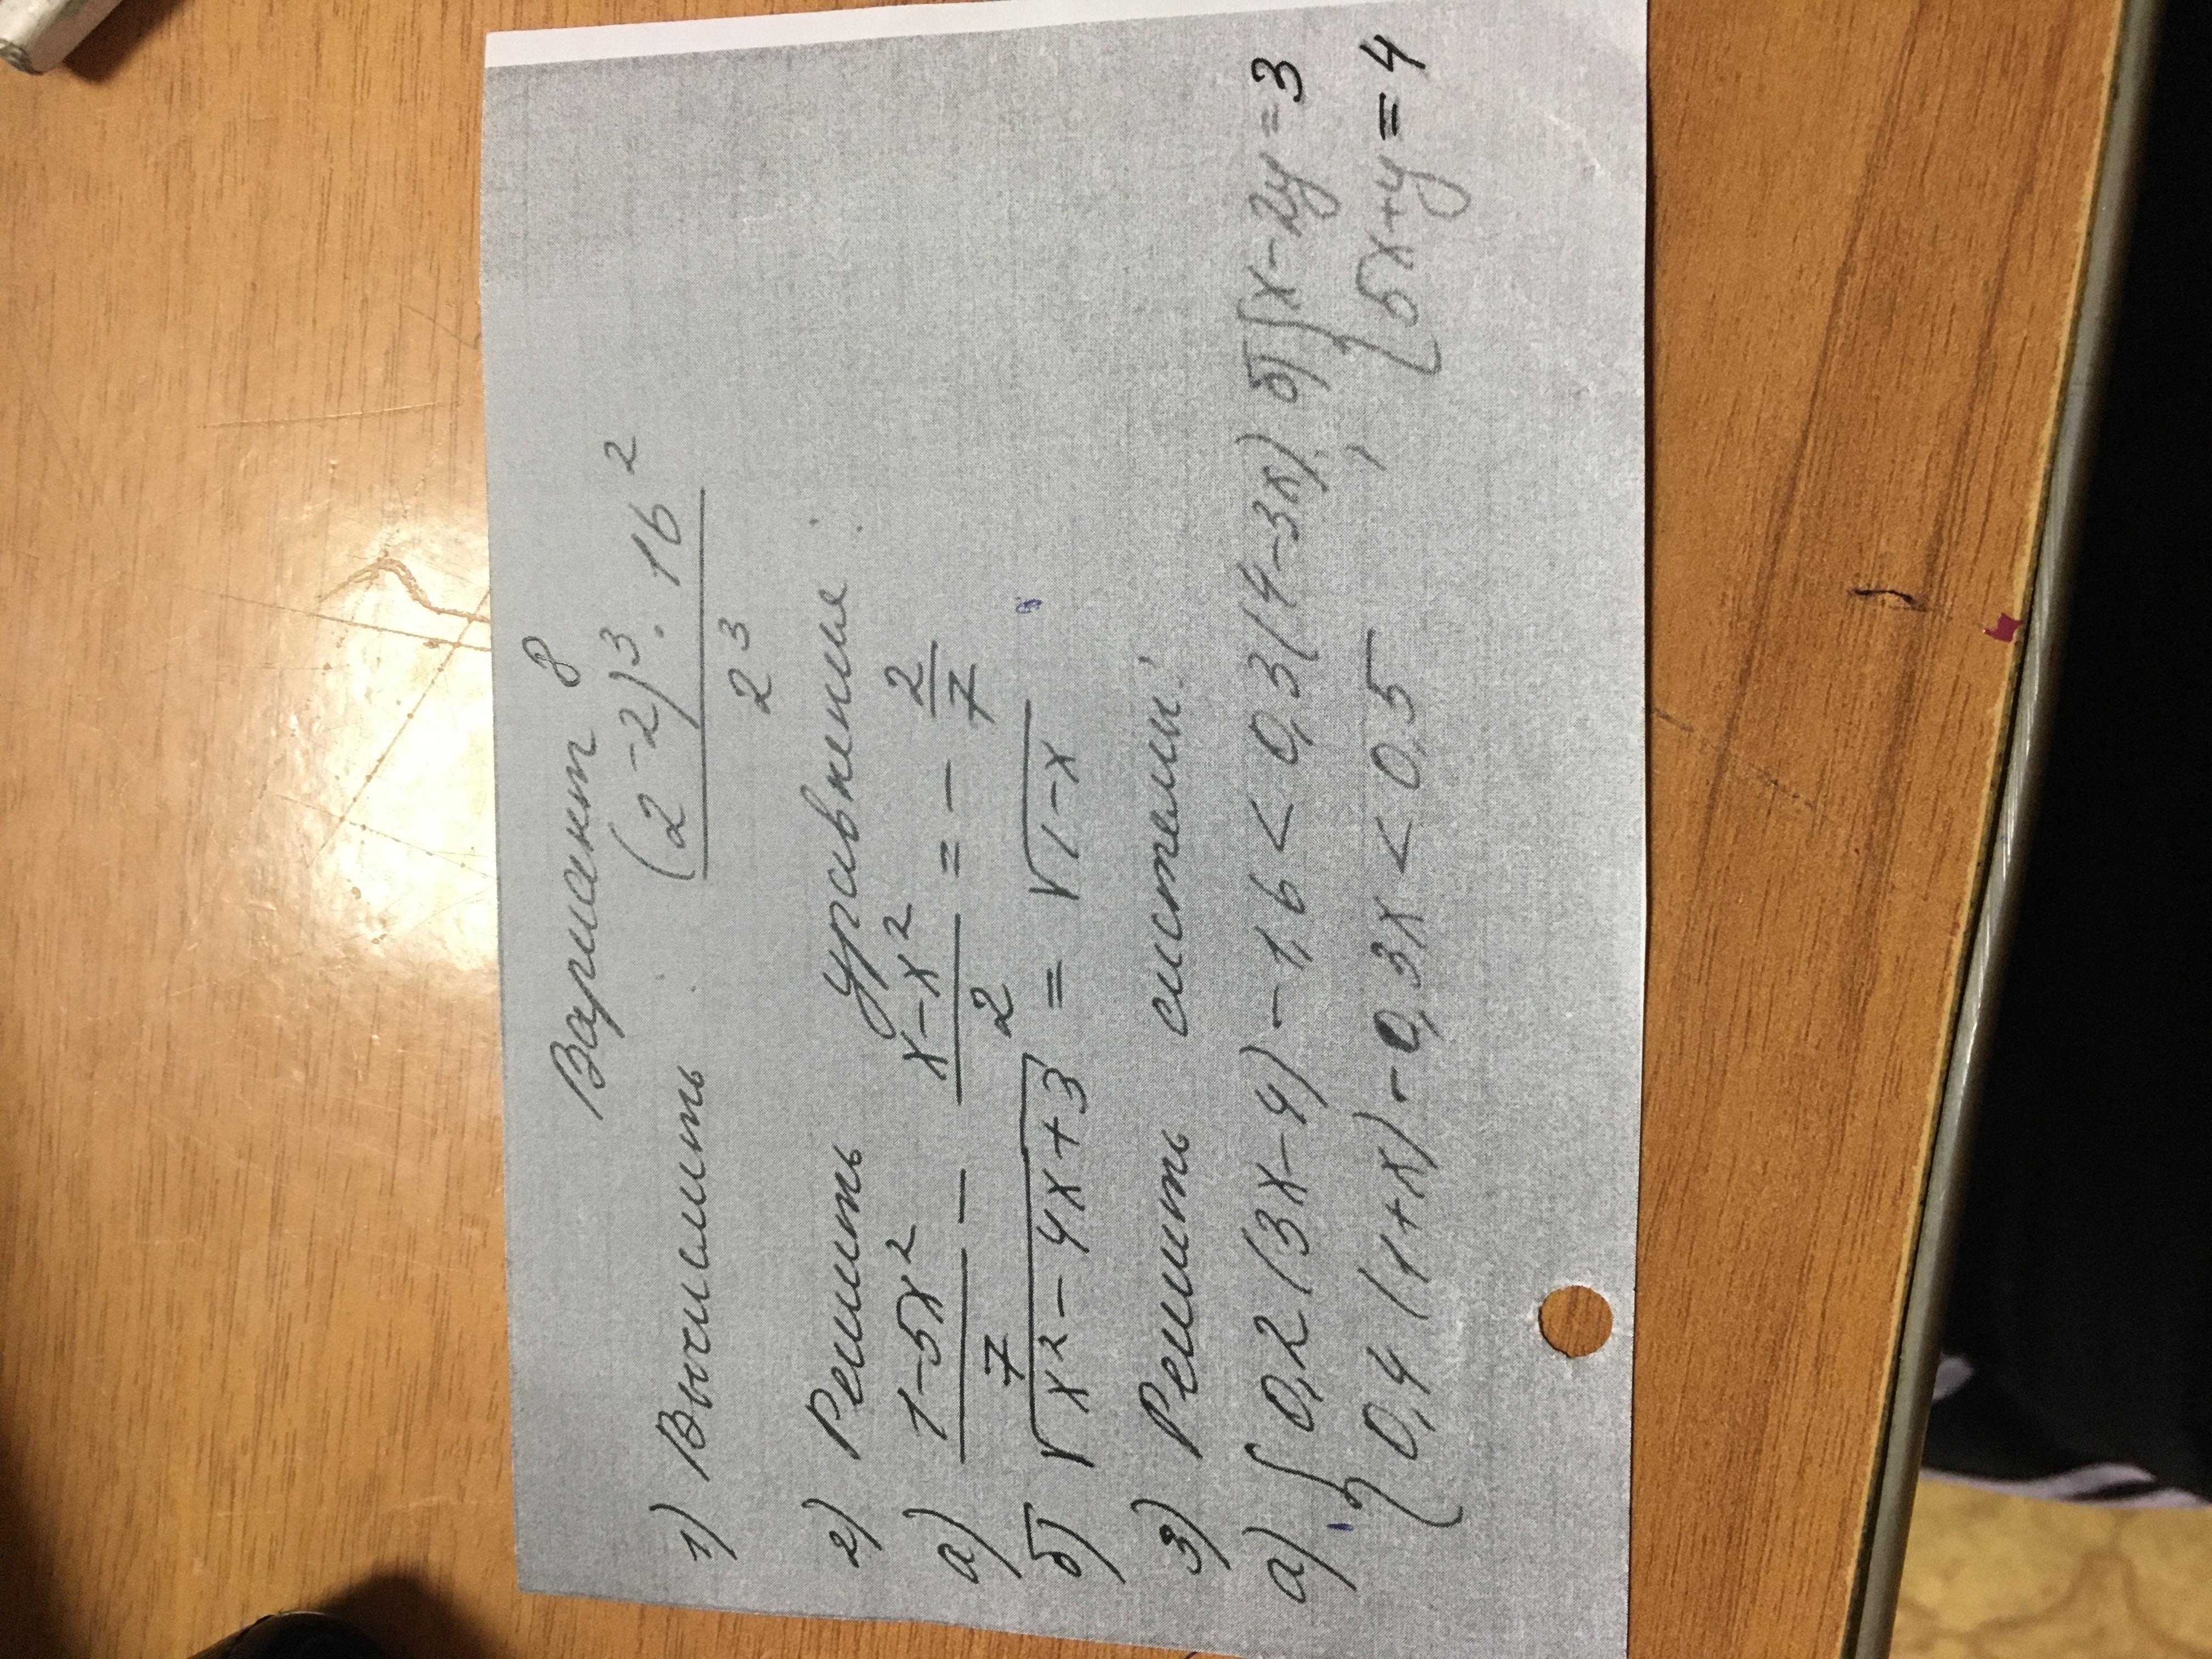 Вариант 8
1) Вычислить (2⁻²)³ · 16² / 2³
2) Решить уравнение:
а) (1-5x²)/7 - (x-x²)/2 = - 2/7
б) √(x²-4x+3) = √(1-x)
3) Решить системы:
а) { 0,2(3x-4)-1,6 < 0,3(4-3x), б) { x-2y=3
0,4(1+x)-0,3x < 0,5 5x+y=4